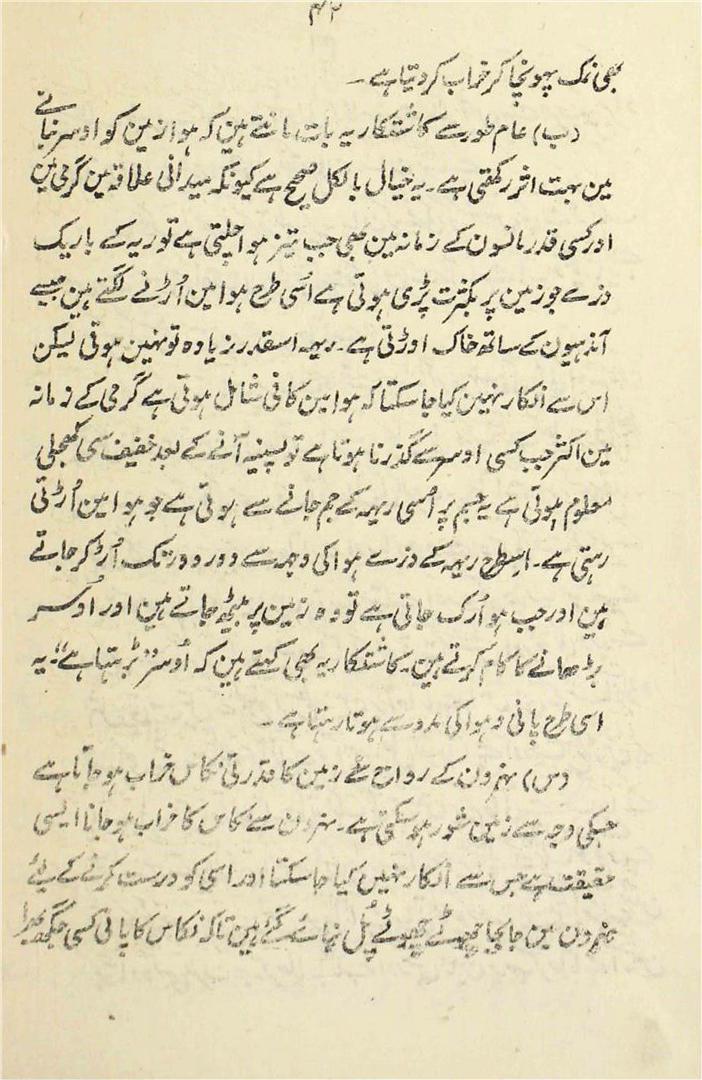 ۴۲
بھی نمک پہونچا کر خراب کر دیتا ہے۔
(ب) عام طور سے کاشتکار یہ بات مانتے ہین کہ ہوا زمین کو اوسر بنانے
مین بہت اثر رکھتی ہے۔ یہ خیال بالکل صحیح ہے کیونکہ میدانی علاقہ مین گرمی مین
اور کسی قدر مانسون کے زمانہ مین بھی جب تیز ہوا چلتی ہے تو ریہ کے باریک
ذرے جو زمین پر بکثرت پڑی ہوتی ہے اُسی طرح ہوا مین اُڑنے لگتے ہین جیسے
آندہیون کے ساتھ خاک اوڑتی ہے۔ ریہہ اسقدر زیادہ تو نہین ہوتی لیکن
اس سے انکار نہین کیا جا سکتا کہ ہوا مین کافی شامل ہوتی ہے گرمی کے زمانہ
مین اکثر جب کسی اوسر سے گذرنا ہوتا ہے تو پسینہ آنے کے بعد خفیف سی کھجلی
معلوم ہوتی ہے یہ جسم پر اُسی ریہہ کے جم جانے سے ہوتی ہے جو ہوا مین اُڑتی
رہتی ہے۔ اسطرح ریہہ کے ذرے ہوا کی وجہ سے دور دور تک اُڑ کر جاتے
ہین اور جب ہوا رُک جاتی ہے تو وہ زمین پر بیٹھ جاتے ہین اور اوسر
بڑھانے کا کام کرتے ہین۔ کاشتکار یہ بھی کہتے ہین کہ اُوسر "بڑہتا ہے"۔ یہ
اسی طرح پانی و ہوا کی مدد سے ہوتا رہتا ہے۔
(س) نہرون کے رواج سے زمین کا قدرتی نکاس خراب ہو جاتا ہے
جسکی وجہ سے زمین شور ہو سکتی ہے۔ نہرون سے نکاس کا خراب ہو جانا ایسی
حقیقت ہے جس سے انکار نہین کیا جا سکتا اور اسی کو درست کرنے کے لئے
نہرون مین جا بجا چھوٹے چھوٹے پُل بنائے گئے ہین تاکہ نکاس کا پانی کسی جگھ بھرا